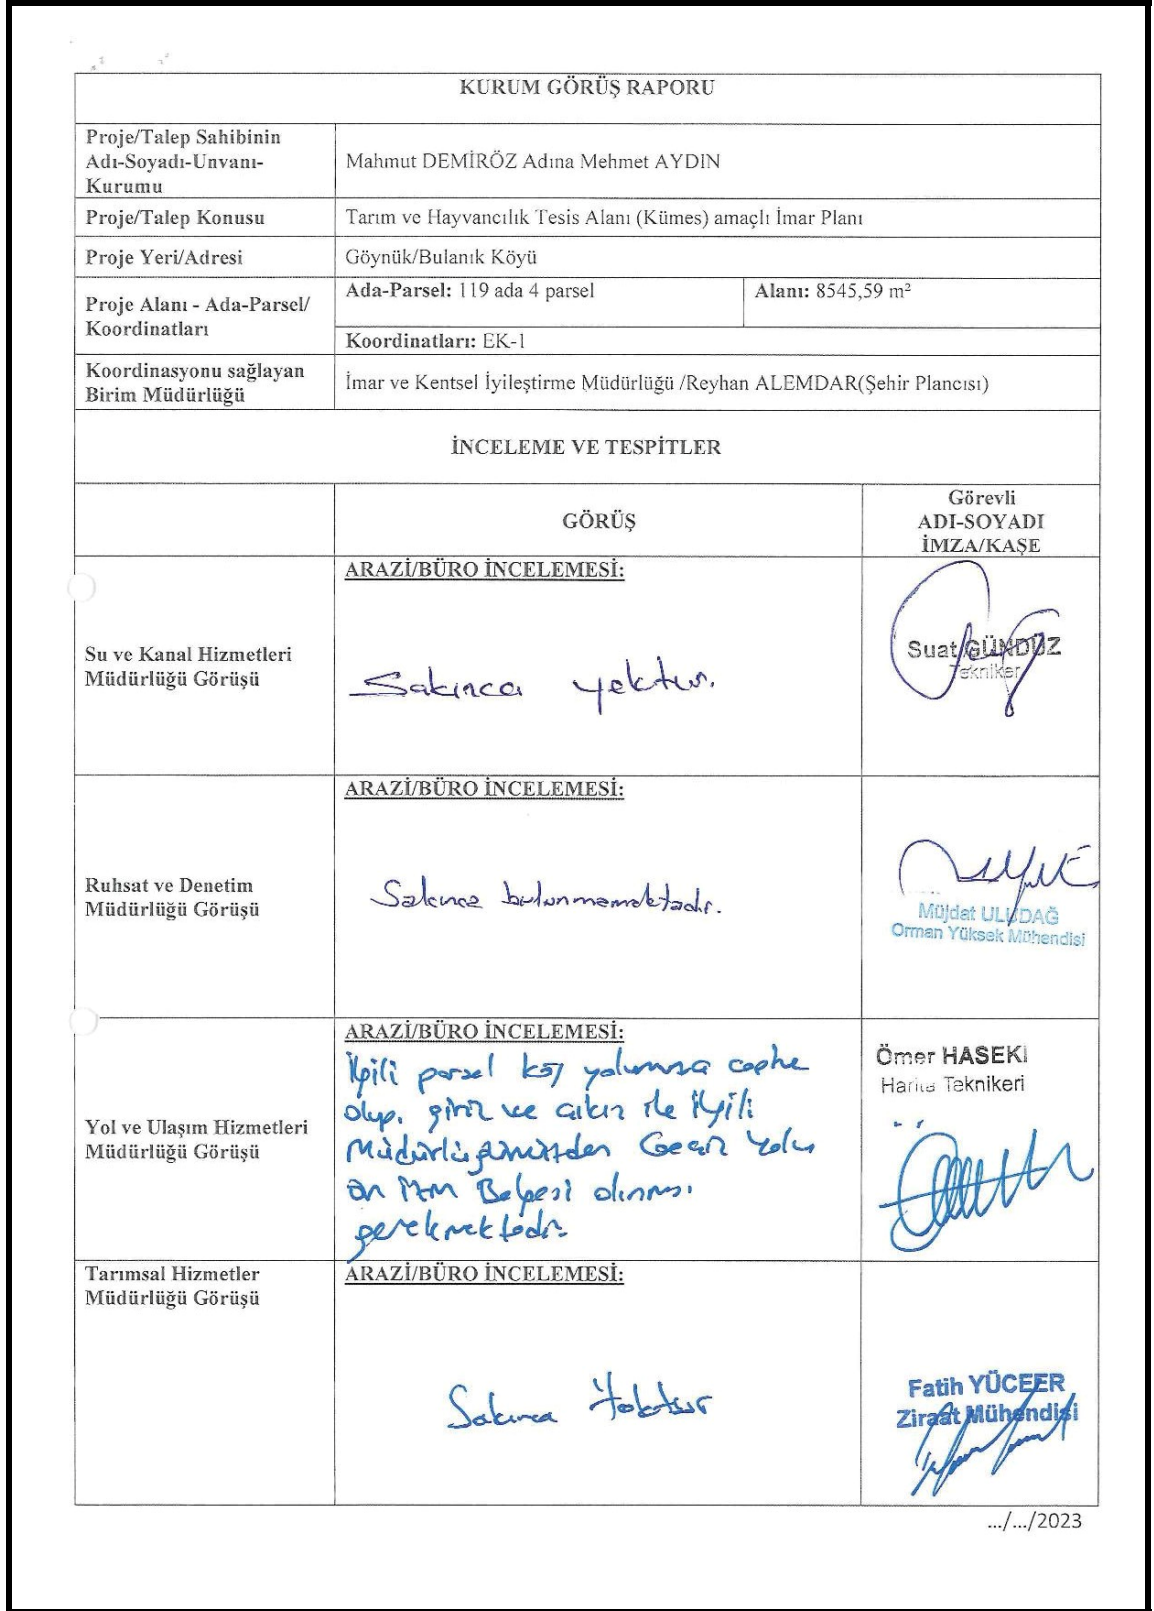 KURUM GÖRÜŞ RAPORU
Proje/Talep Sahibinin
Adı-Soyadı-Unvanı-
Kurumu
Mahmut DEMİRÖZ Adına Mehmet AYDIN
Proje/Talep Konusu
Tarım ve Hayvancılık Tesis Alanı (Kümes) amaçlı İmar Planı
Proje Yeri/Adresi
Göynük/Bulanık Köyü
Proje Alanı - Ada-Parsel/
Koordinatları
Ada-Parsel: 119 ada 4 parsel
Alanı: 8545,59 m²
Koordinatları: EK-1
Koordinasyonu sağlayan
Birim Müdürlüğü
İmar ve Kentsel İyileştirme Müdürlüğü /Reyhan ALEMDAR(Şehir Plancısı)
İNCELEME VE TESPİTLER
GÖRÜŞ
Görevli
ADI-SOYADI
İMZA/KAŞE
Su ve Kanal Hizmetleri
Müdürlüğü Görüşü
ARAZİ/BÜRO İNCELEMESİ:
Sakınca yoktur.
Suat GÜNDÜZ
Tekniker
Ruhsat ve Denetim
Müdürlüğü Görüşü
ARAZİ/BÜRO İNCELEMESİ:
Sakınca bulunmamaktadır.
Müjdat ULUDAĞ
Orman Yüksek Mühendisi
Yol ve Ulaşım Hizmetleri
Müdürlüğü Görüşü
ARAZİ/BÜRO İNCELEMESİ:
İlgili parsel köy yolumuza cephe
olup, giriş ve çıkış ile ilgili
Müdürlüğümüzden Geçiş Yolu
Ön İzin Belgesi alınması
gerekmektedir.
Ömer HASEKİ
Harita Teknikeri
Tarımsal Hizmetler
Müdürlüğü Görüşü
ARAZİ/BÜRO İNCELEMESİ:
Sakınca Yoktur
Fatih YÜCEER
Ziraat Mühendisi
.../.../2023